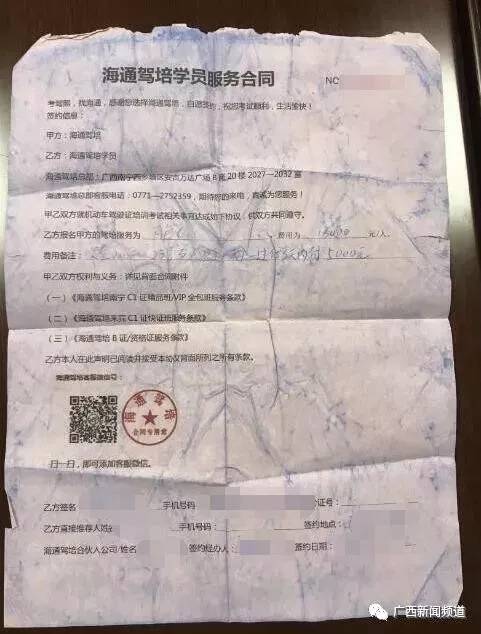 海通驾培学员服务合同
NC
考驾照，找海通，感谢您选择海通驾培，自愿签约，祝您考试顺利，生活愉快！
签约信息：
甲方：海通驾培
乙方：海通驾培学员
海通驾培总部：广西南宁西乡塘区安吉万达广场B座20楼2027—2032室
海通驾培总部客服电话：0771—2752359，期待您的来电，真诚为您服务！
甲乙双方就机动车驾驶证培训考试相关事宜达成如下协议，供双方共同遵守。
乙方报名甲方的驾培服务为 费用为 15000 元/人
费用备注： 5000元
甲乙双方权利与义务：详见背面合同附件
（一）《海通驾培南宁C1证精品班/VIP全包班服务条款》
（二）《海通驾培来宾C1证快证班服务条款》
（三）《海通驾培B证/资格证服务条款》
乙方本人在此声明已阅读并接受本协议背面所列之所有条款。
海通驾培客服微信号：
海通驾培
合同专用章
扫一扫，即可添加客服微信。
乙方签名 手机号码 份证号：
乙方直接推荐人姓名 手机号码 签约地点：
海通驾培合伙人公司/姓名 签约经办人： 签约日期：
广西新闻频道